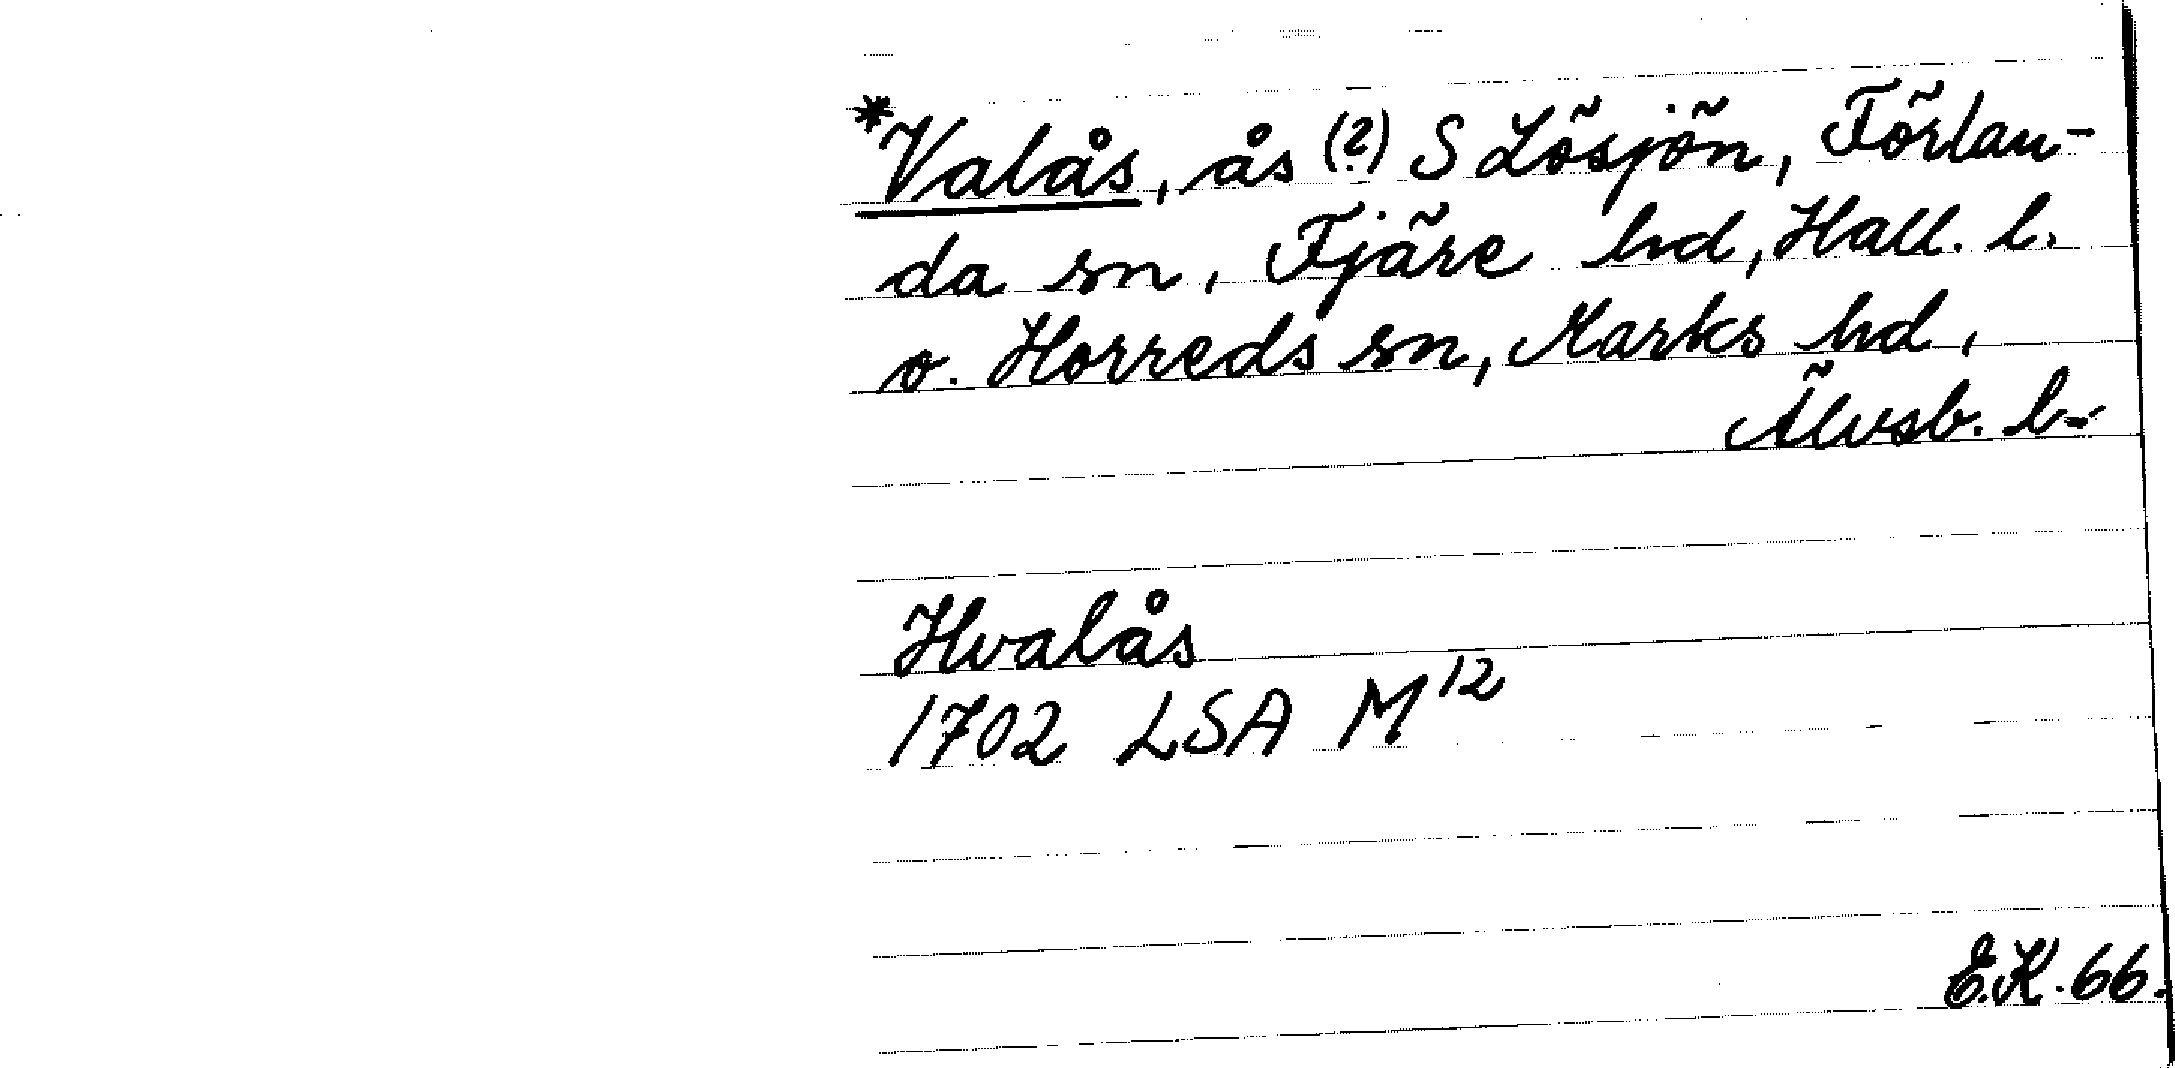 *Valås, ås (?) S Lösjön, Förlan-
da sn, Fjäre hd, Hall. l.
o. Horreds sn, Marks hd,
Älvsb. l.
Hvalås
1702 LSA M¹²
E.K. 66.